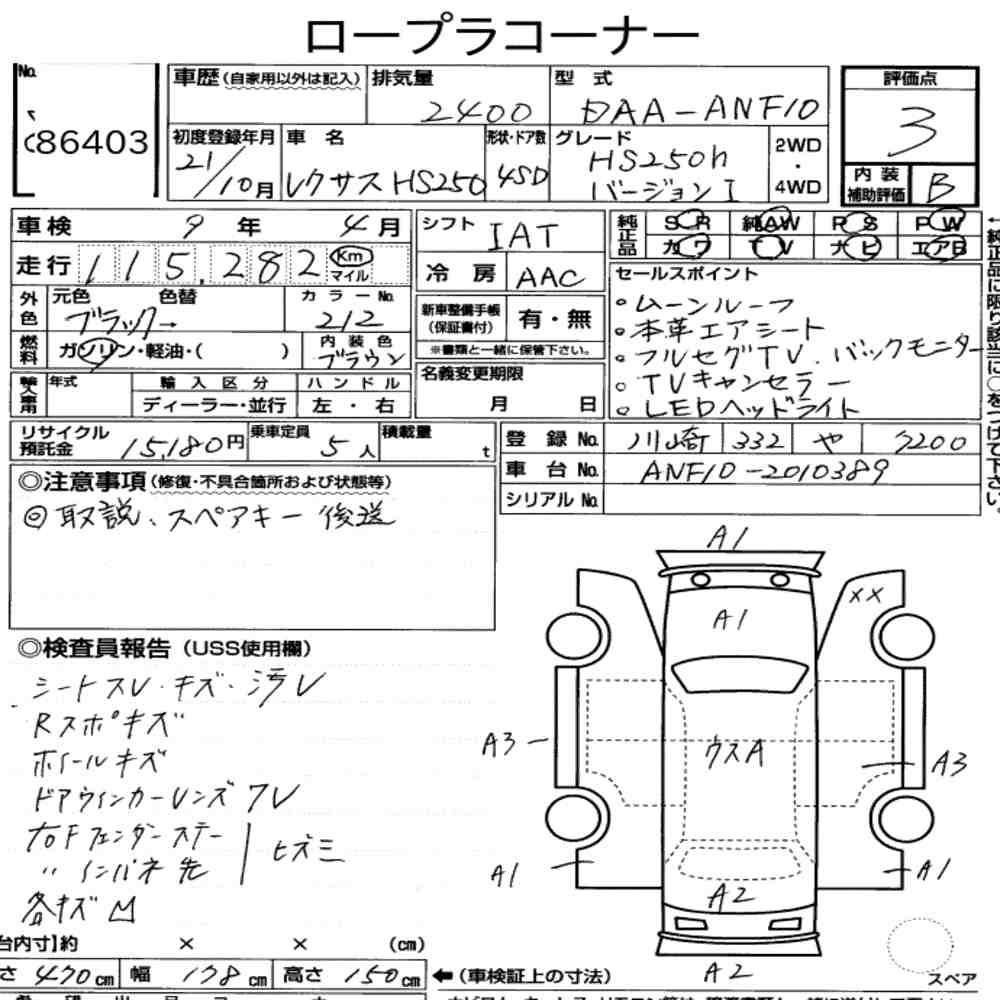 ロープラコーナー
No.
86403
車歴(自家用以外は記入)
排気量
2400
型式
DAA-ANF10
評価点
3
初度登録年月
21/10月
車名
レクサス HS250
形状・ドア数
4SD
グレード
HS250h
バージョンI
2WD
・
4WD
内装
補助評価
B
車検 9年 4月
シフト
IAT
純正品
SR 純AW PS PW
カワ TV ナビ エアB
走行 115,282 Km
マイル
冷房 AAC
セールスポイント
。ムーンルーフ
。本革エアシート
。フルセグTV.バックモニター
。TVキャンセラー
。LEDヘッドライト
←純正品に限り該当に○をつけて下さい。
外色
元色 色替
ブラック→
カラーNo.
212
新車整備手帳
(保証書付)
有・無
※書類と一緒に保管下さい。
燃料
ガソリン・軽油・( )
内装色
ブラウン
名義変更期限
月 日
輸入車用
年式
輸入区分
ディーラー・並行
ハンドル
左・右
リサイクル
預託金
15,180円
乗車定員
5人
積載量
t
登録No. 川崎 332 や 7200
車台No. ANF10-2010389
シリアルNo.
◎注意事項(修復・不具合箇所および状態等)
◎取説、スペアキー後送
◎検査員報告(USS使用欄)
シートスレ・キズ・汚レ
Rスポキズ
ホイールキズ
ドアウィンカーレンズワレ
右Fフェンダーステー
〃インパネ先
ヒズミ
各キズ凹
A1
A1
XX
A3
ウスA
A3
A1
A1
A2
A2
スペア
台内寸】約 × × (cm)
さ 470cm 幅 178cm 高さ 150cm
←(車検証上の寸法)